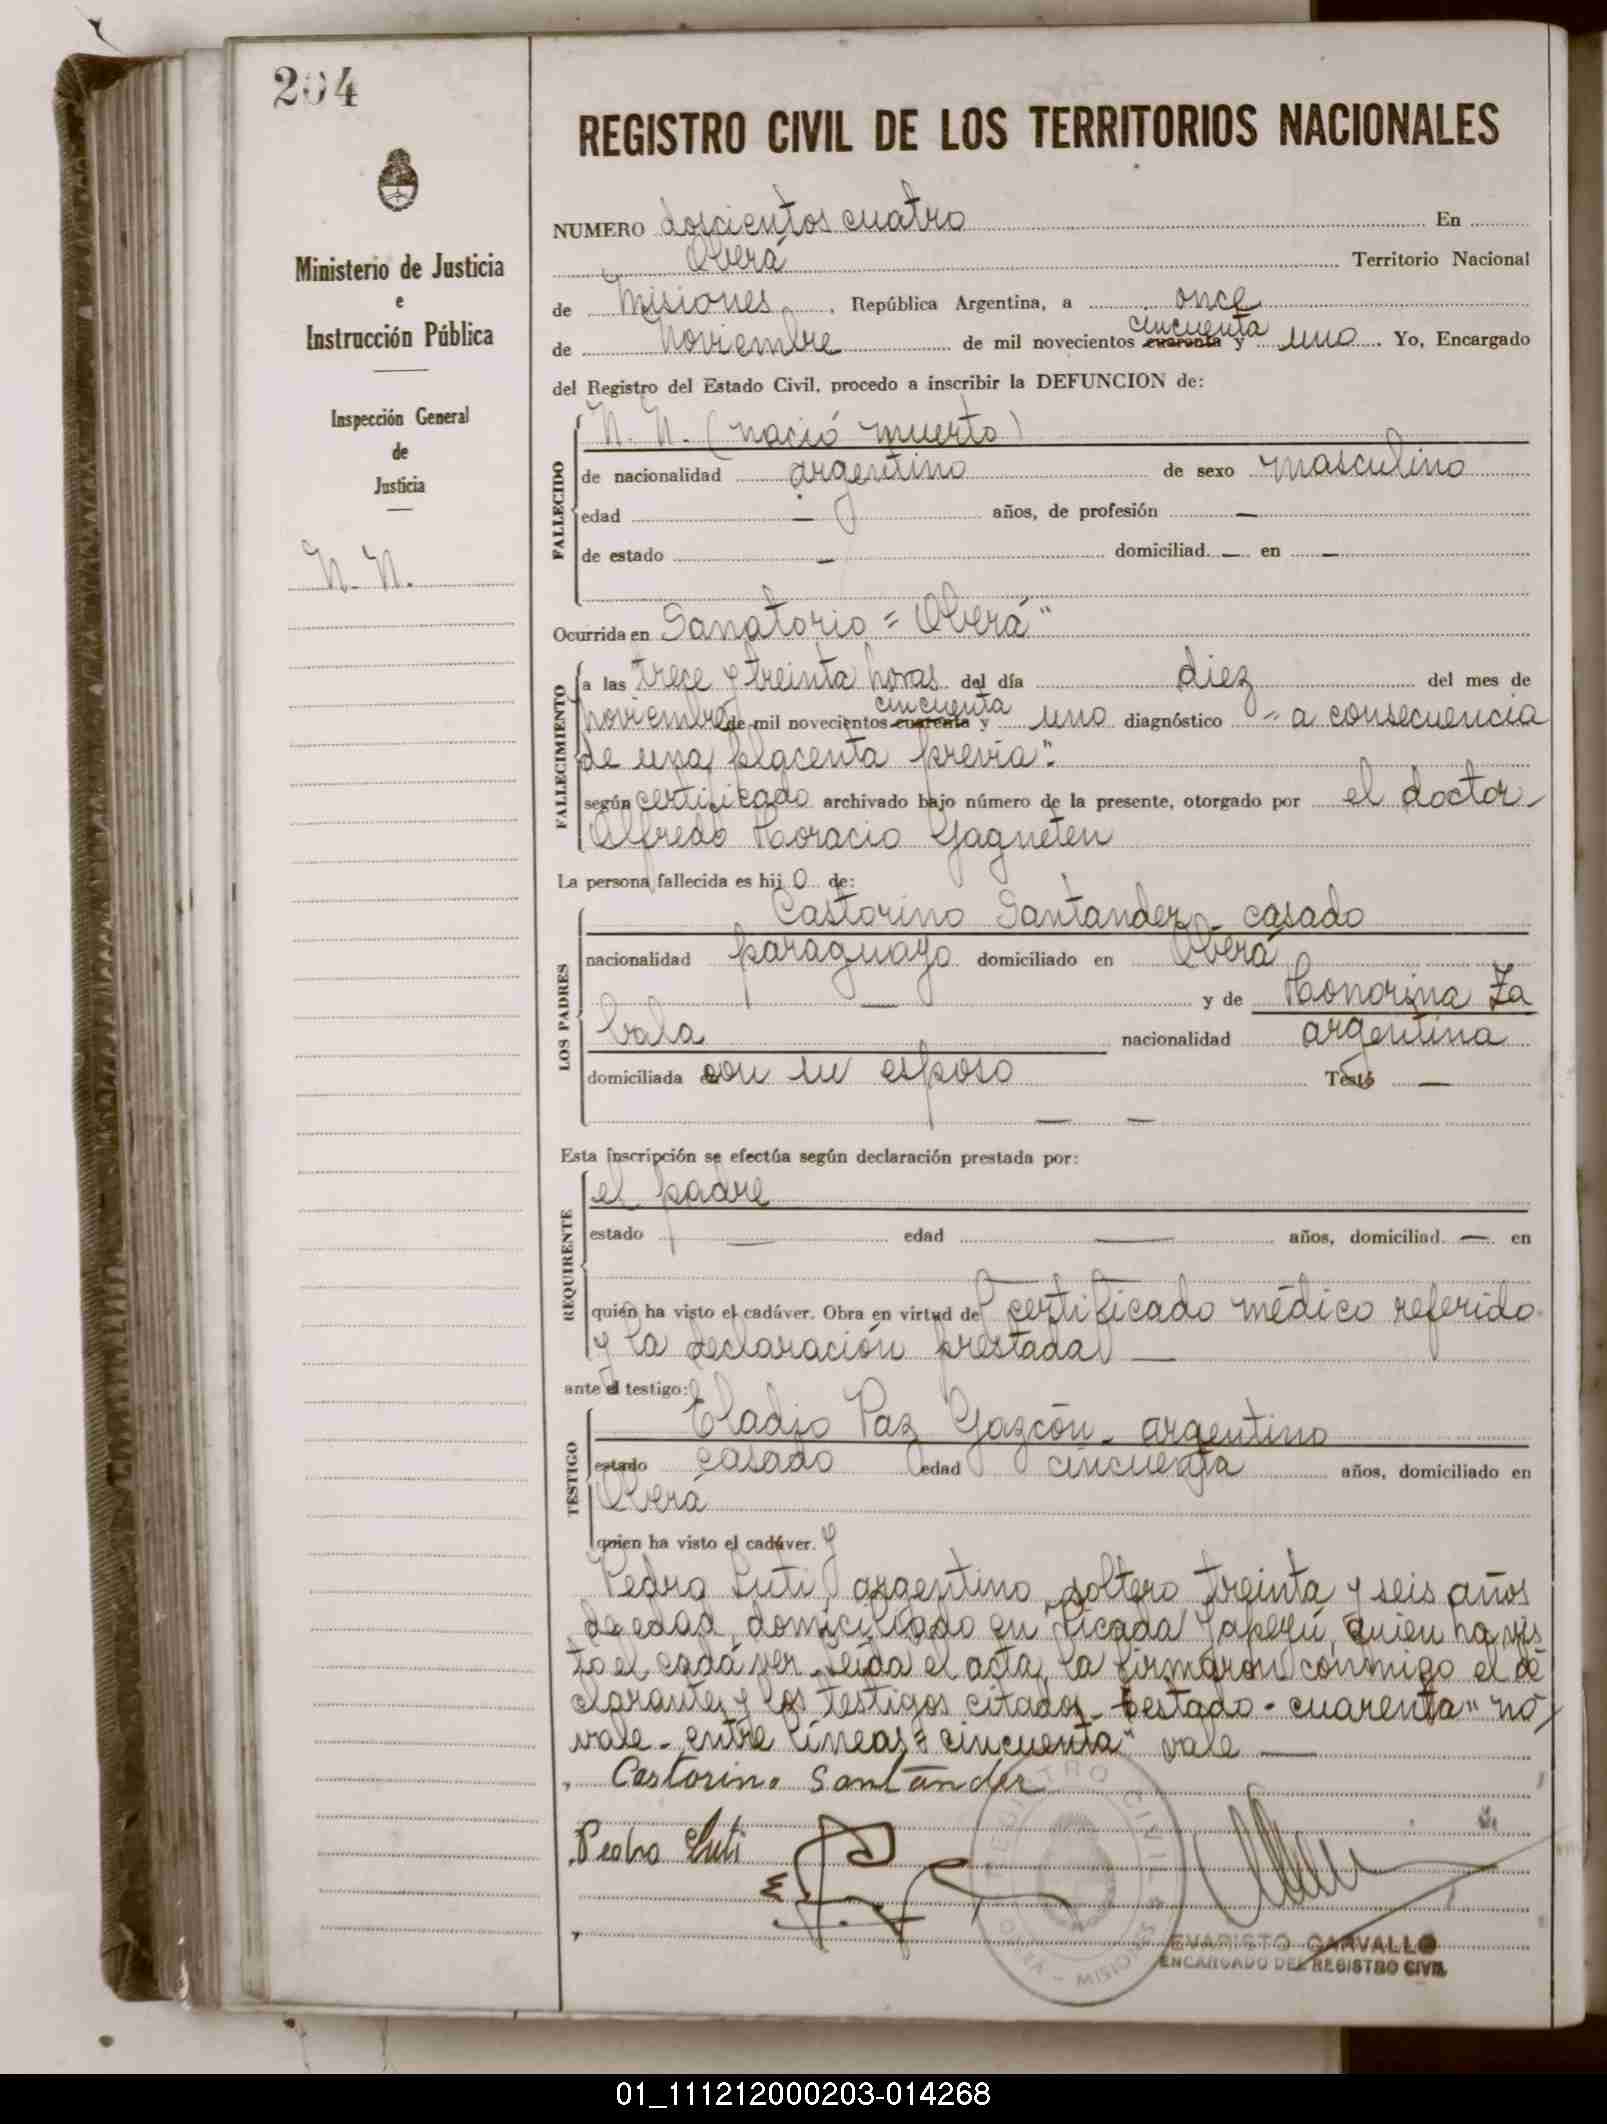 204
Ministerio de Justicia
e
Instrucción Pública
Inspección General
de
Justicia
N. N.
REGISTRO CIVIL DE LOS TERRITORIOS NACIONALES
NUMERO doscientos cuatro En
Oberá Territorio Nacional
de Misiones, República Argentina, a once
de Noviembre de mil novecientos cuarenta cincuenta y uno. Yo, Encargado
del Registro del Estado Civil, procedo a inscribir la DEFUNCION de:
FALLECIDO
N. N. (nació muerto)
de nacionalidad argentino de sexo masculino
edad — años, de profesión —
de estado — domiciliad — en —
Ocurrida en Sanatorio "Oberá"
FALLECIMIENTO
a las trece y treinta horas del día diez del mes de
noviembre de mil novecientos cuarenta cincuenta y uno diagnóstico "a consecuencia
de una placenta previa".
según certificado archivado bajo número de la presente, otorgado por el doctor
Alfredo Horacio Gagneten
La persona fallecida es hij o de:
LOS PADRES
Castorino Santander - casado
nacionalidad paraguayo domiciliado en Oberá
— y de Honorina Za
bala nacionalidad argentina
domiciliada con su esposo Testó —
— —
Esta inscripción se efectúa según declaración prestada por:
REQUIRENTE
el padre
estado — edad — años, domiciliad — en
quién ha visto el cadáver. Obra en virtud del certificado médico referido
y la declaración prestada —
ante el testigo:
TESTIGO
Eladio Paz Gazcón - argentino
estado casado edad cincuenta años, domiciliado en
Oberá
quien ha visto el cadáver. y
Pedro Suti, argentino, soltero, treinta y seis años
de edad, domiciliado en Picada Yapeyú, quien ha vis
to el cadáver - Leída el acta, la firmaron conmigo el de
clarante y los testigos citados - testado - cuarenta" no
vale - entre líneas "cincuenta" vale —
Castorino Santander
Pedro Suti
REGISTRO CIVIL
OBERA - MISIONES
EVARISTO CARVALLO
ENCARGADO DEL REGISTRO CIVIL
01_111212000203-014268